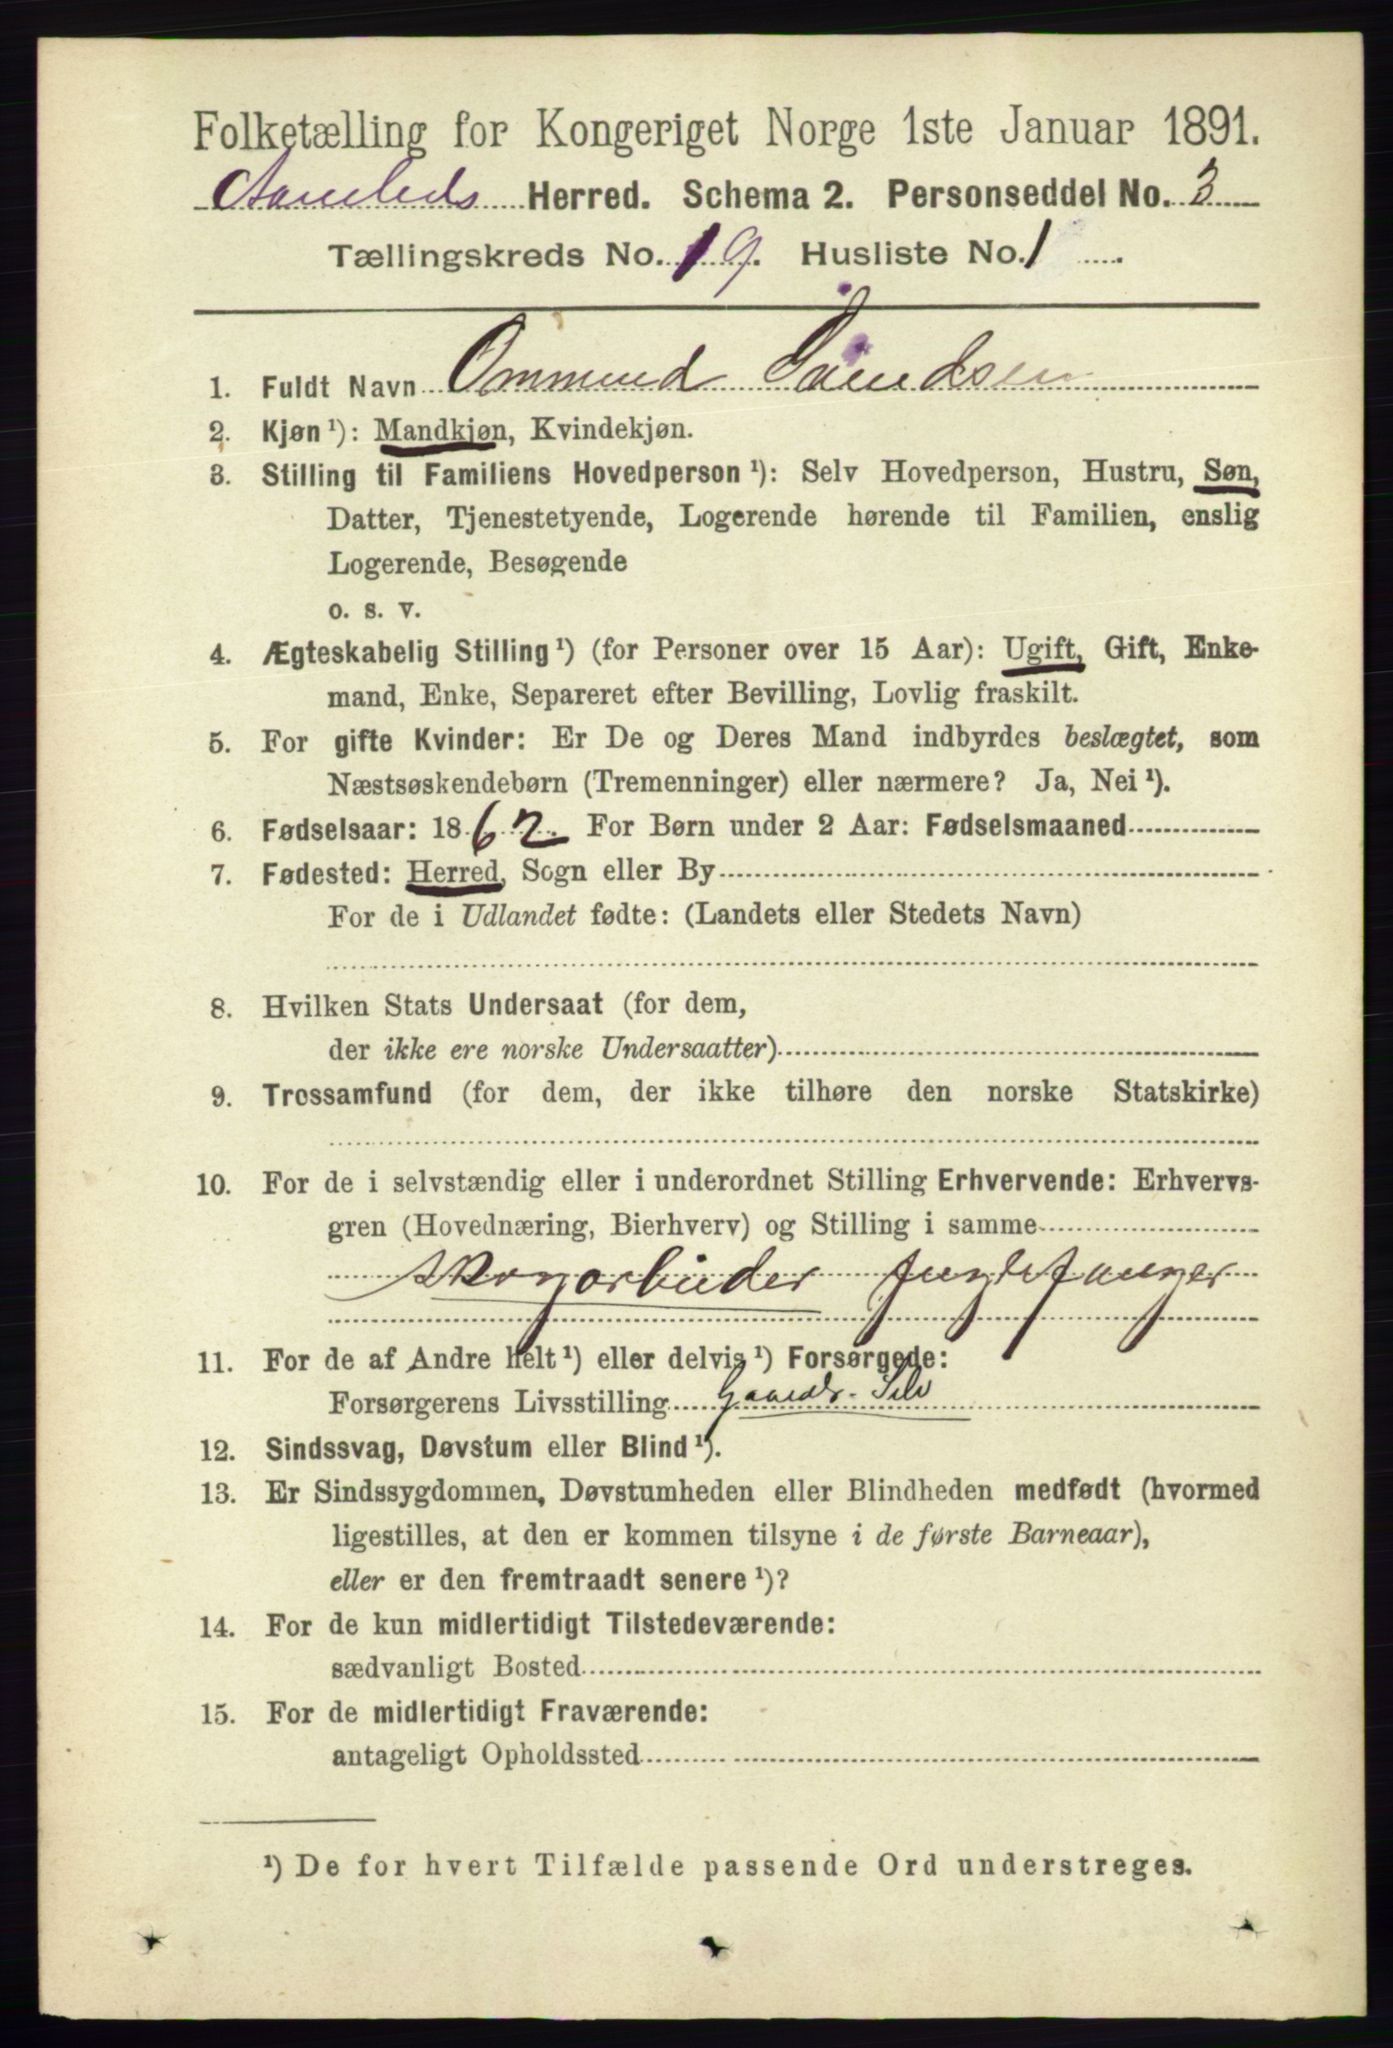 Folketælling for Kongeriget Norge 1ste Januar 1891.
Herred. Schema 2. Personseddel No. 3
Tællingskreds No. 19. Husliste No. 1
1. Fuldt Navn Ommund
2. Kjøn ¹): Mandkjøn, Kvindekjøn.
3. Stilling til Familiens Hovedperson ¹): Selv Hovedperson, Hustru, Søn,
Datter, Tjenestetyende, Logerende hørende til Familien, enslig
Logerende, Besøgende
o. s. v.
4. Ægteskabelig Stilling ¹) (for Personer over 15 Aar): Ugift, Gift, Enke-
mand, Enke, Separeret efter Bevilling, Lovlig fraskilt.
5. For gifte Kvinder: Er De og Deres Mand indbyrdes beslægtet, som
Næstsøskendebørn (Tremenninger) eller nærmere? Ja, Nei ¹).
6. Fødselsaar: 1862. For Børn under 2 Aar: Fødselsmaaned
7. Fødested: Herred, Sogn eller By
For de i Udlandet fødte: (Landets eller Stedets Navn)
8. Hvilken Stats Undersaat (for dem,
der ikke ere norske Undersaatter)
9. Trossamfund (for dem, der ikke tilhøre den norske Statskirke)
10. For de i selvstændig eller i underordnet Stilling Erhvervende: Erhvervs-
gren (Hovednæring, Bierhverv) og Stilling i samme
Skovarbeider fuglefanger
11. For de af Andre helt ¹) eller delvis ¹) Forsørgede:
Forsørgerens Livsstilling Gaardr. Selv
12. Sindssvag, Døvstum eller Blind ¹).
13. Er Sindssygdommen, Døvstumheden eller Blindheden medfødt (hvormed
ligestilles, at den er kommen tilsyne i de første Barneaar),
eller er den fremtraadt senere ¹)?
14. For de kun midlertidigt Tilstedeværende:
sædvanligt Bosted
15. For de midlertidigt Fraværende:
antageligt Opholdssted
¹) De for hvert Tilfælde passende Ord understreges.